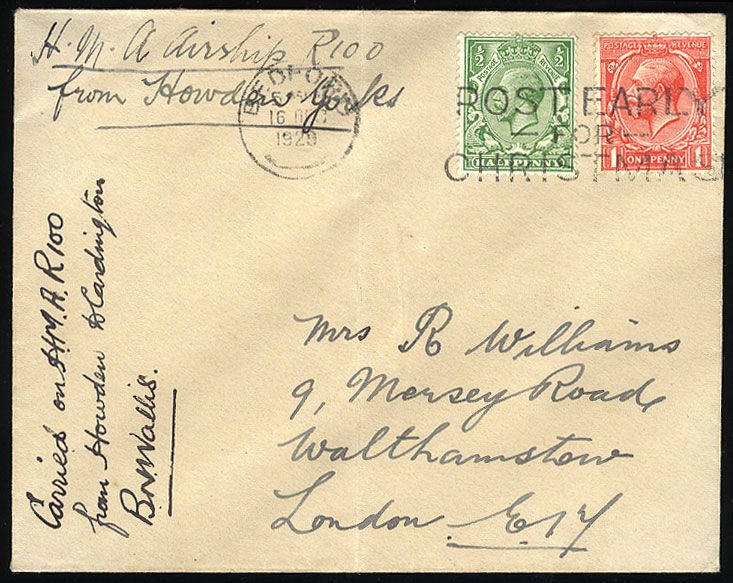 H. M. A Airship R100
from Howden Yorks
BEDFORD
16 DEC
1929
POSTAGE REVENUE
1/2 1/2
HALFPENNY
POSTAGE REVENUE
1 ONE PENNY 1
POST EARLY
— FOR —
CHRISTMAS
Carried on H.M.A. R100
from Howden to Cardington
B.N.Wallis.
Mrs R Williams
9, Mersey Road,
Walthamstow
London. E17